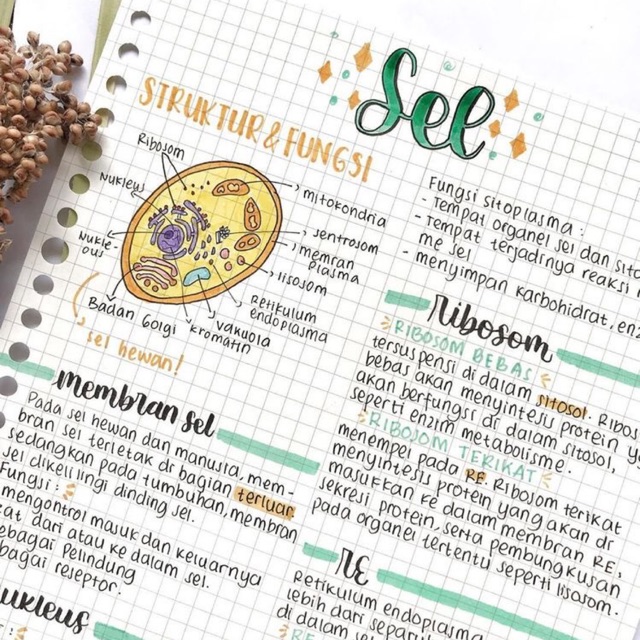 Sel
STRUKTUR & FUNGSI
Ribosom
Nukleus
Nukle-
ous
Badan Golgi
kromatin
vakuola
Retikulum
endoplasma
lisosom
memran
plasma
sentrosom
mitokondria
sel hewan!
membran sel
Pada sel hewan dan manusia, mem-
bran sel terletak di bagian terluar
sedangkan pada tumbuhan, membran
sel dikelilingi dinding sel.
Fungsi :
mengontrol masuk dan keluarnya
dari atau ke dalam sel.
sebagai pelindung
sebagai reseptor.
Fungsi sitoplasma :
- Tempat organel sel dan
- Tempat terjadinya reaksi
me sel
- menyimpan karbohidrat,
Ribosom
RIBOSOM BEBAS
tersuspensi di dalam sitosol.
bebas akan menyintesis protein
akan berfungsi di dalam sitosol,
seperti enzim metabolisme.
RIBOSOM TERIKAT
menempel pada RE. Ribosom terikat
menyintesis protein yang akan di
masukkan ke dalam membran RE,
sekresi protein, serta pembungkusan
pada organel tertentu seperti lisosom.
RE
Retikulum endoplasma
lebih dari
di dalam
RE